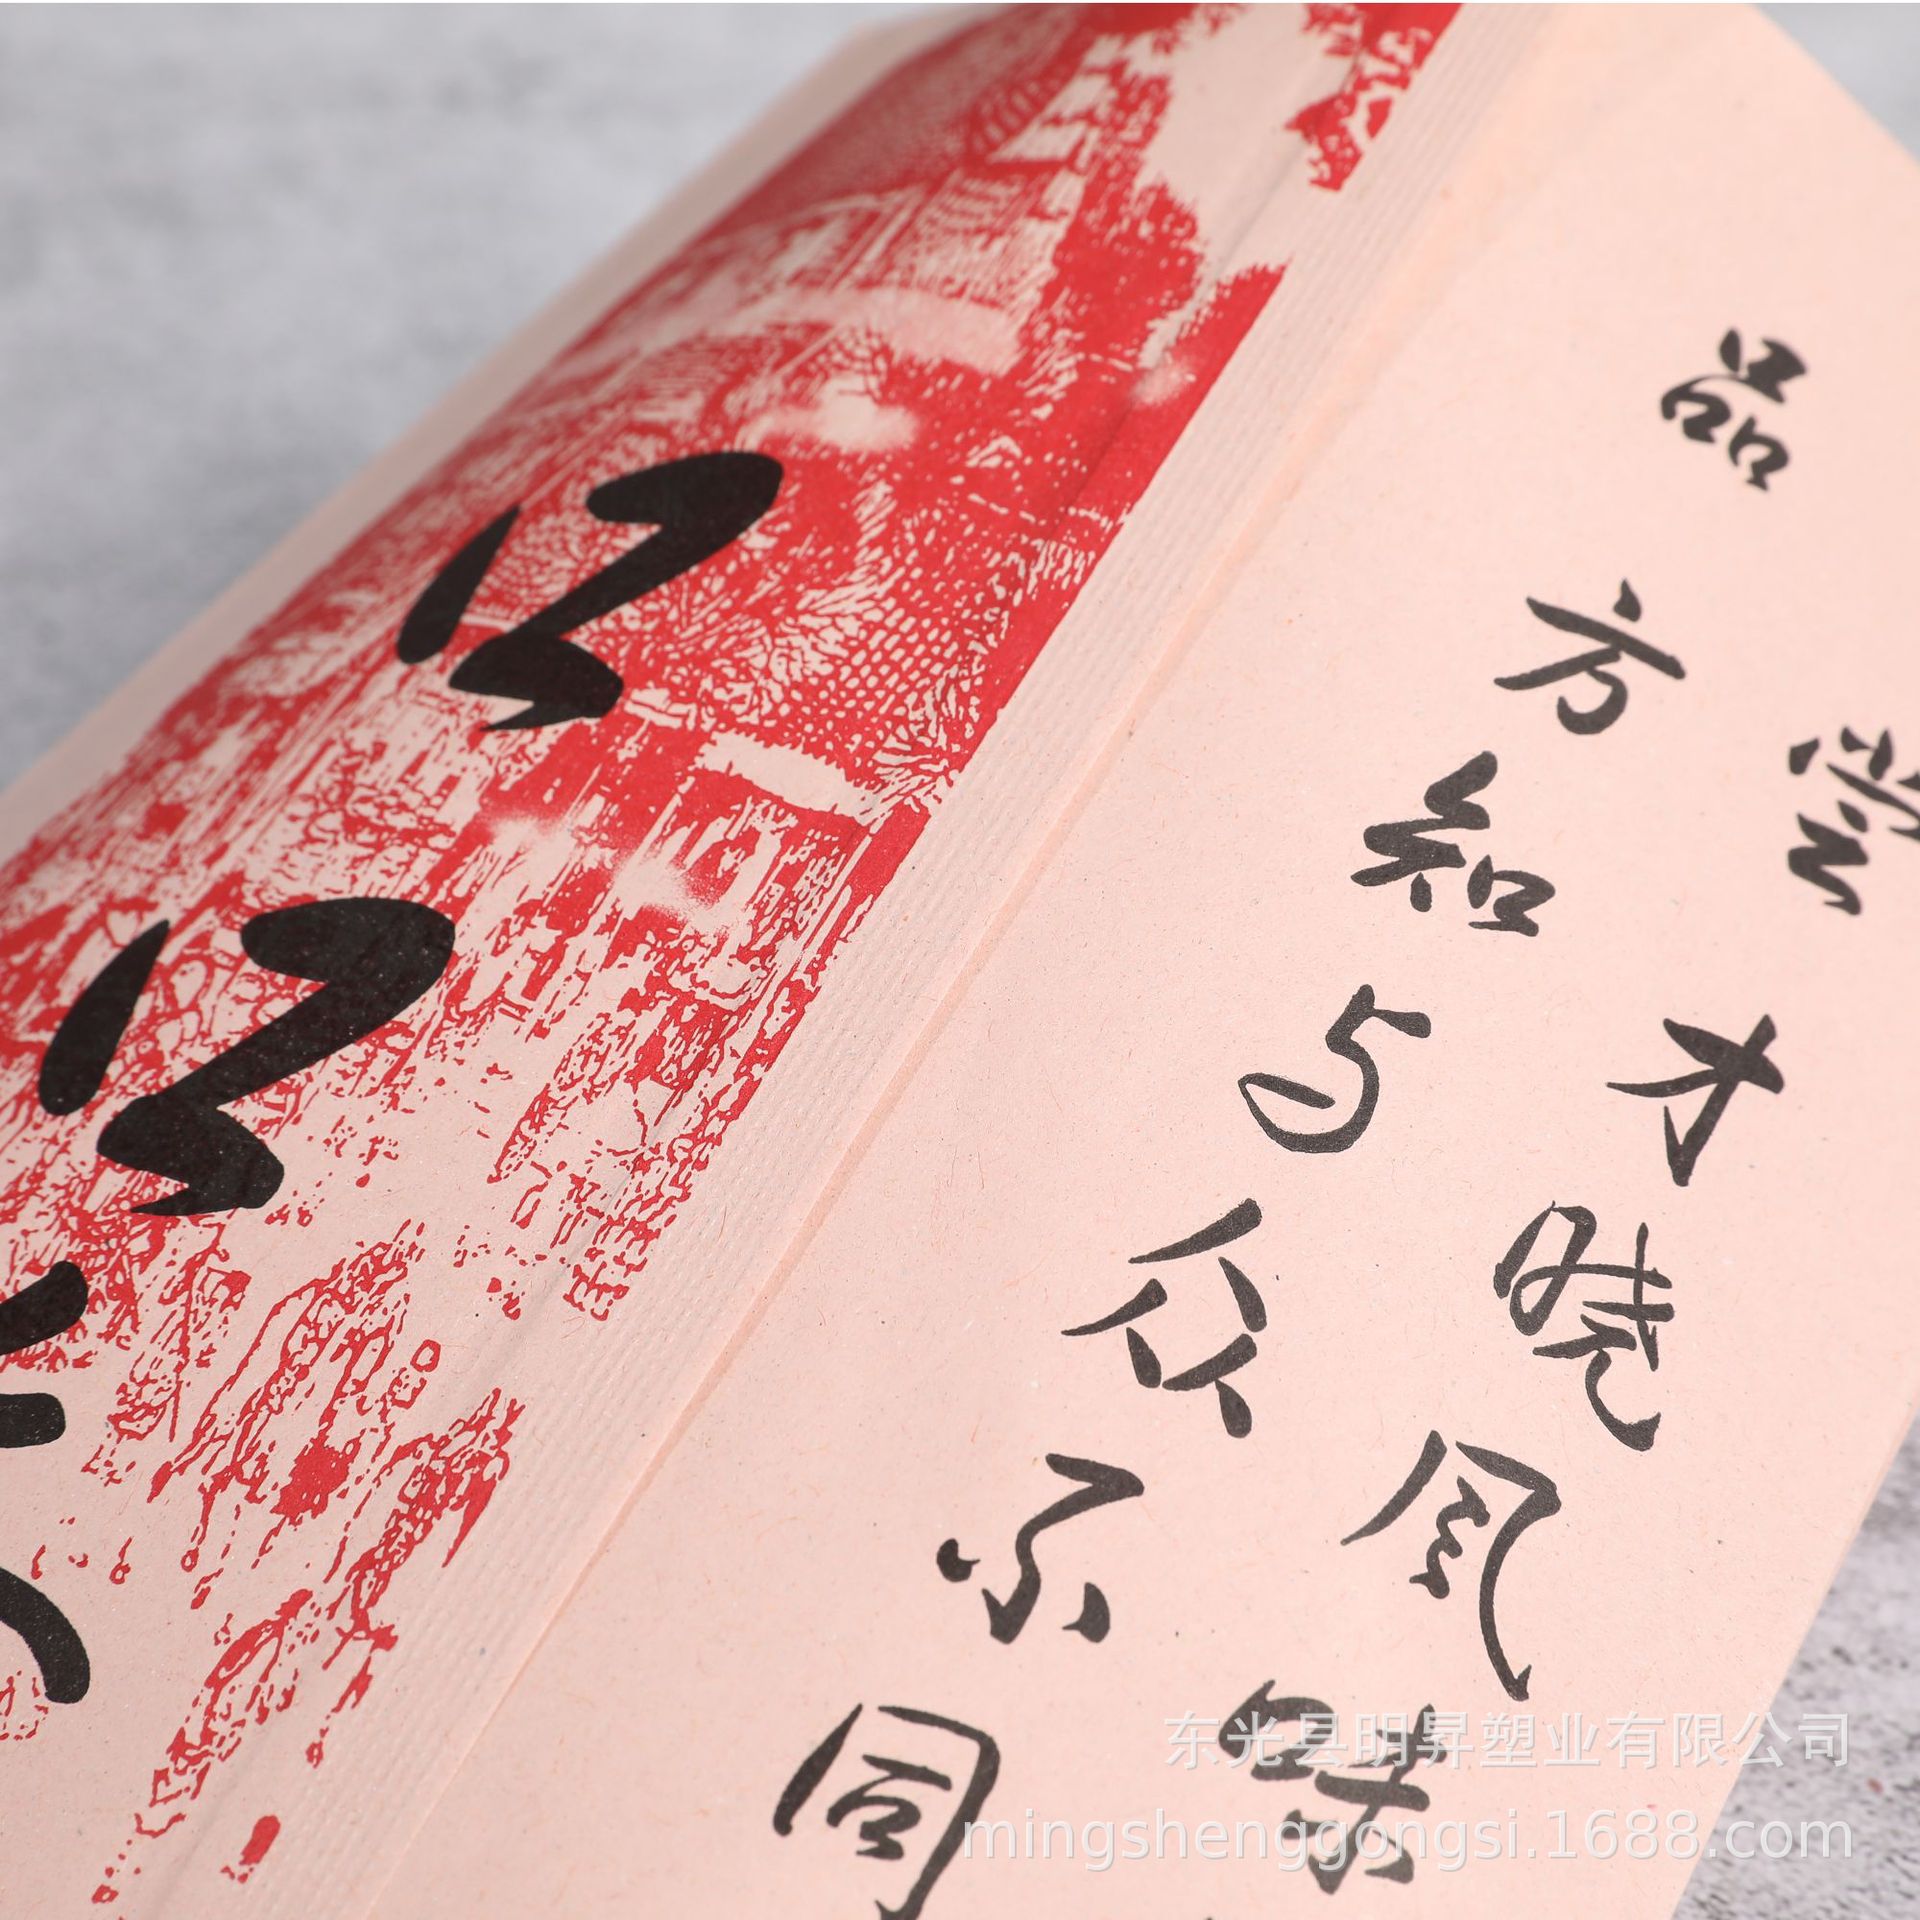 尝才晓风味
品方知与众不同
东光县明昇塑业有限公司
mingshenggongsi.1688.com